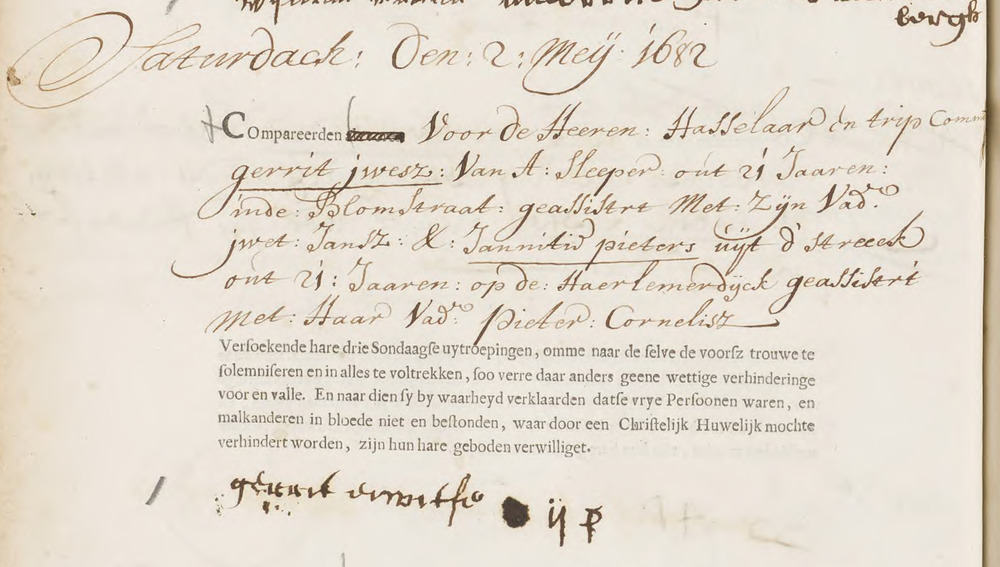 bergh
Saturdach: Den: 2: Meÿ: 1682
COmpareerden Voor de Heeren: Hasselaar en trip Comm
gerrit jwesz: Van A: Sleeper: out 21 Jaaren:
inde: Blomstraat: geassistrt Met: Zijn Vadr
jwet: Jansz: & : Jannitie pieters uijt d' streeck
out 21: Jaaren: op de: Haerlemerdijck geassistrt
Met: Haar Vadr: Pieter: Cornelisz
Verſoekende hare drie Sondaagſe uytroepingen, omme naar de ſelve de voorſz trouwe te
ſolemniſeren en in alles te voltrekken, ſoo verre daar anders geene wettige verhinderinge
voor en valle. En naar dien ſy by waarheyd verklaarden datſe vrye Perſoonen waren, en
malkanderen in bloede niet en beſtonden, waar door een Chriſtelijk Huwelijk mochte
verhindert worden, zijn hun hare geboden verwilliget.
gerrit ij p